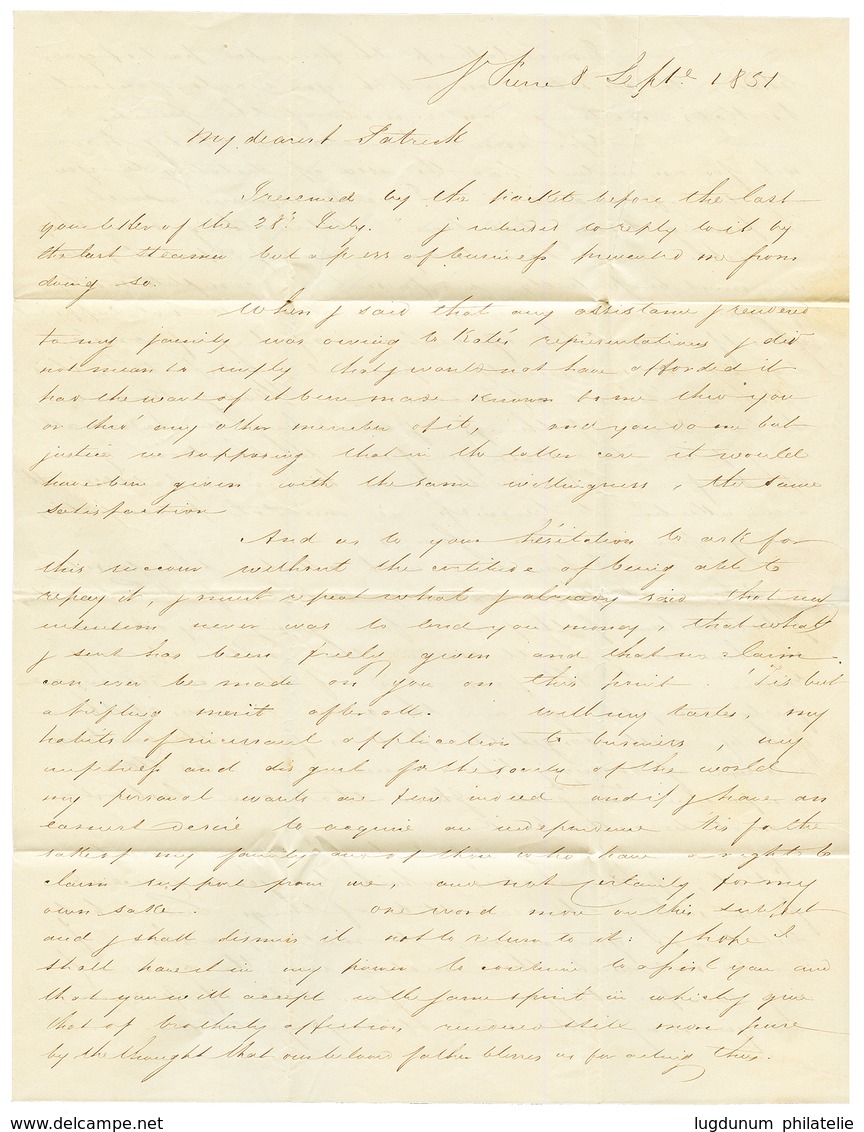 St Pierre 8 Septe 1851
My dearest Patrick
I received by the packet before the last
your letter of the 28th July. I intended to reply to it by
the last steamer but a press of business prevented me from
doing so.
When I said that any assistance I rendered
to my family was owing to Kate's representations I did
not mean to imply that I would not have afforded it
had the want of it been made known to me thro' you
or thro' any other member of it, and you do me but
justice in supposing that in the latter case it would
have been given with the same willingness, the same
satisfaction
And as to your hésitation to ask for
this succour without the certitude of being able to
repay it, I must repeat what I already said that my
intention never was to lend you money, that what
I sent has been freely given and that no claim
can ever be made on you on this point. 'Tis but
a trifling merit after all. With my tastes, my
habits of incessant application to business, my
and disgust for the society of the world
my personal wants are few indeed and if I have an
earnest desire to acquire an independence 'tis for the
sake of my family and of those who have a right to
claim support from me, and not certainly for my
own sake. One word more on this subject
and I shall dismiss it not to return to it: I hope I
shall have it in my power to continue to assist you and
that you will accept with same spirit in which I give
that of brotherly affection rendered still more pure
by the thought that our beloved father blesses us for acting thus.
delcampe.net
lugdunum philatelie